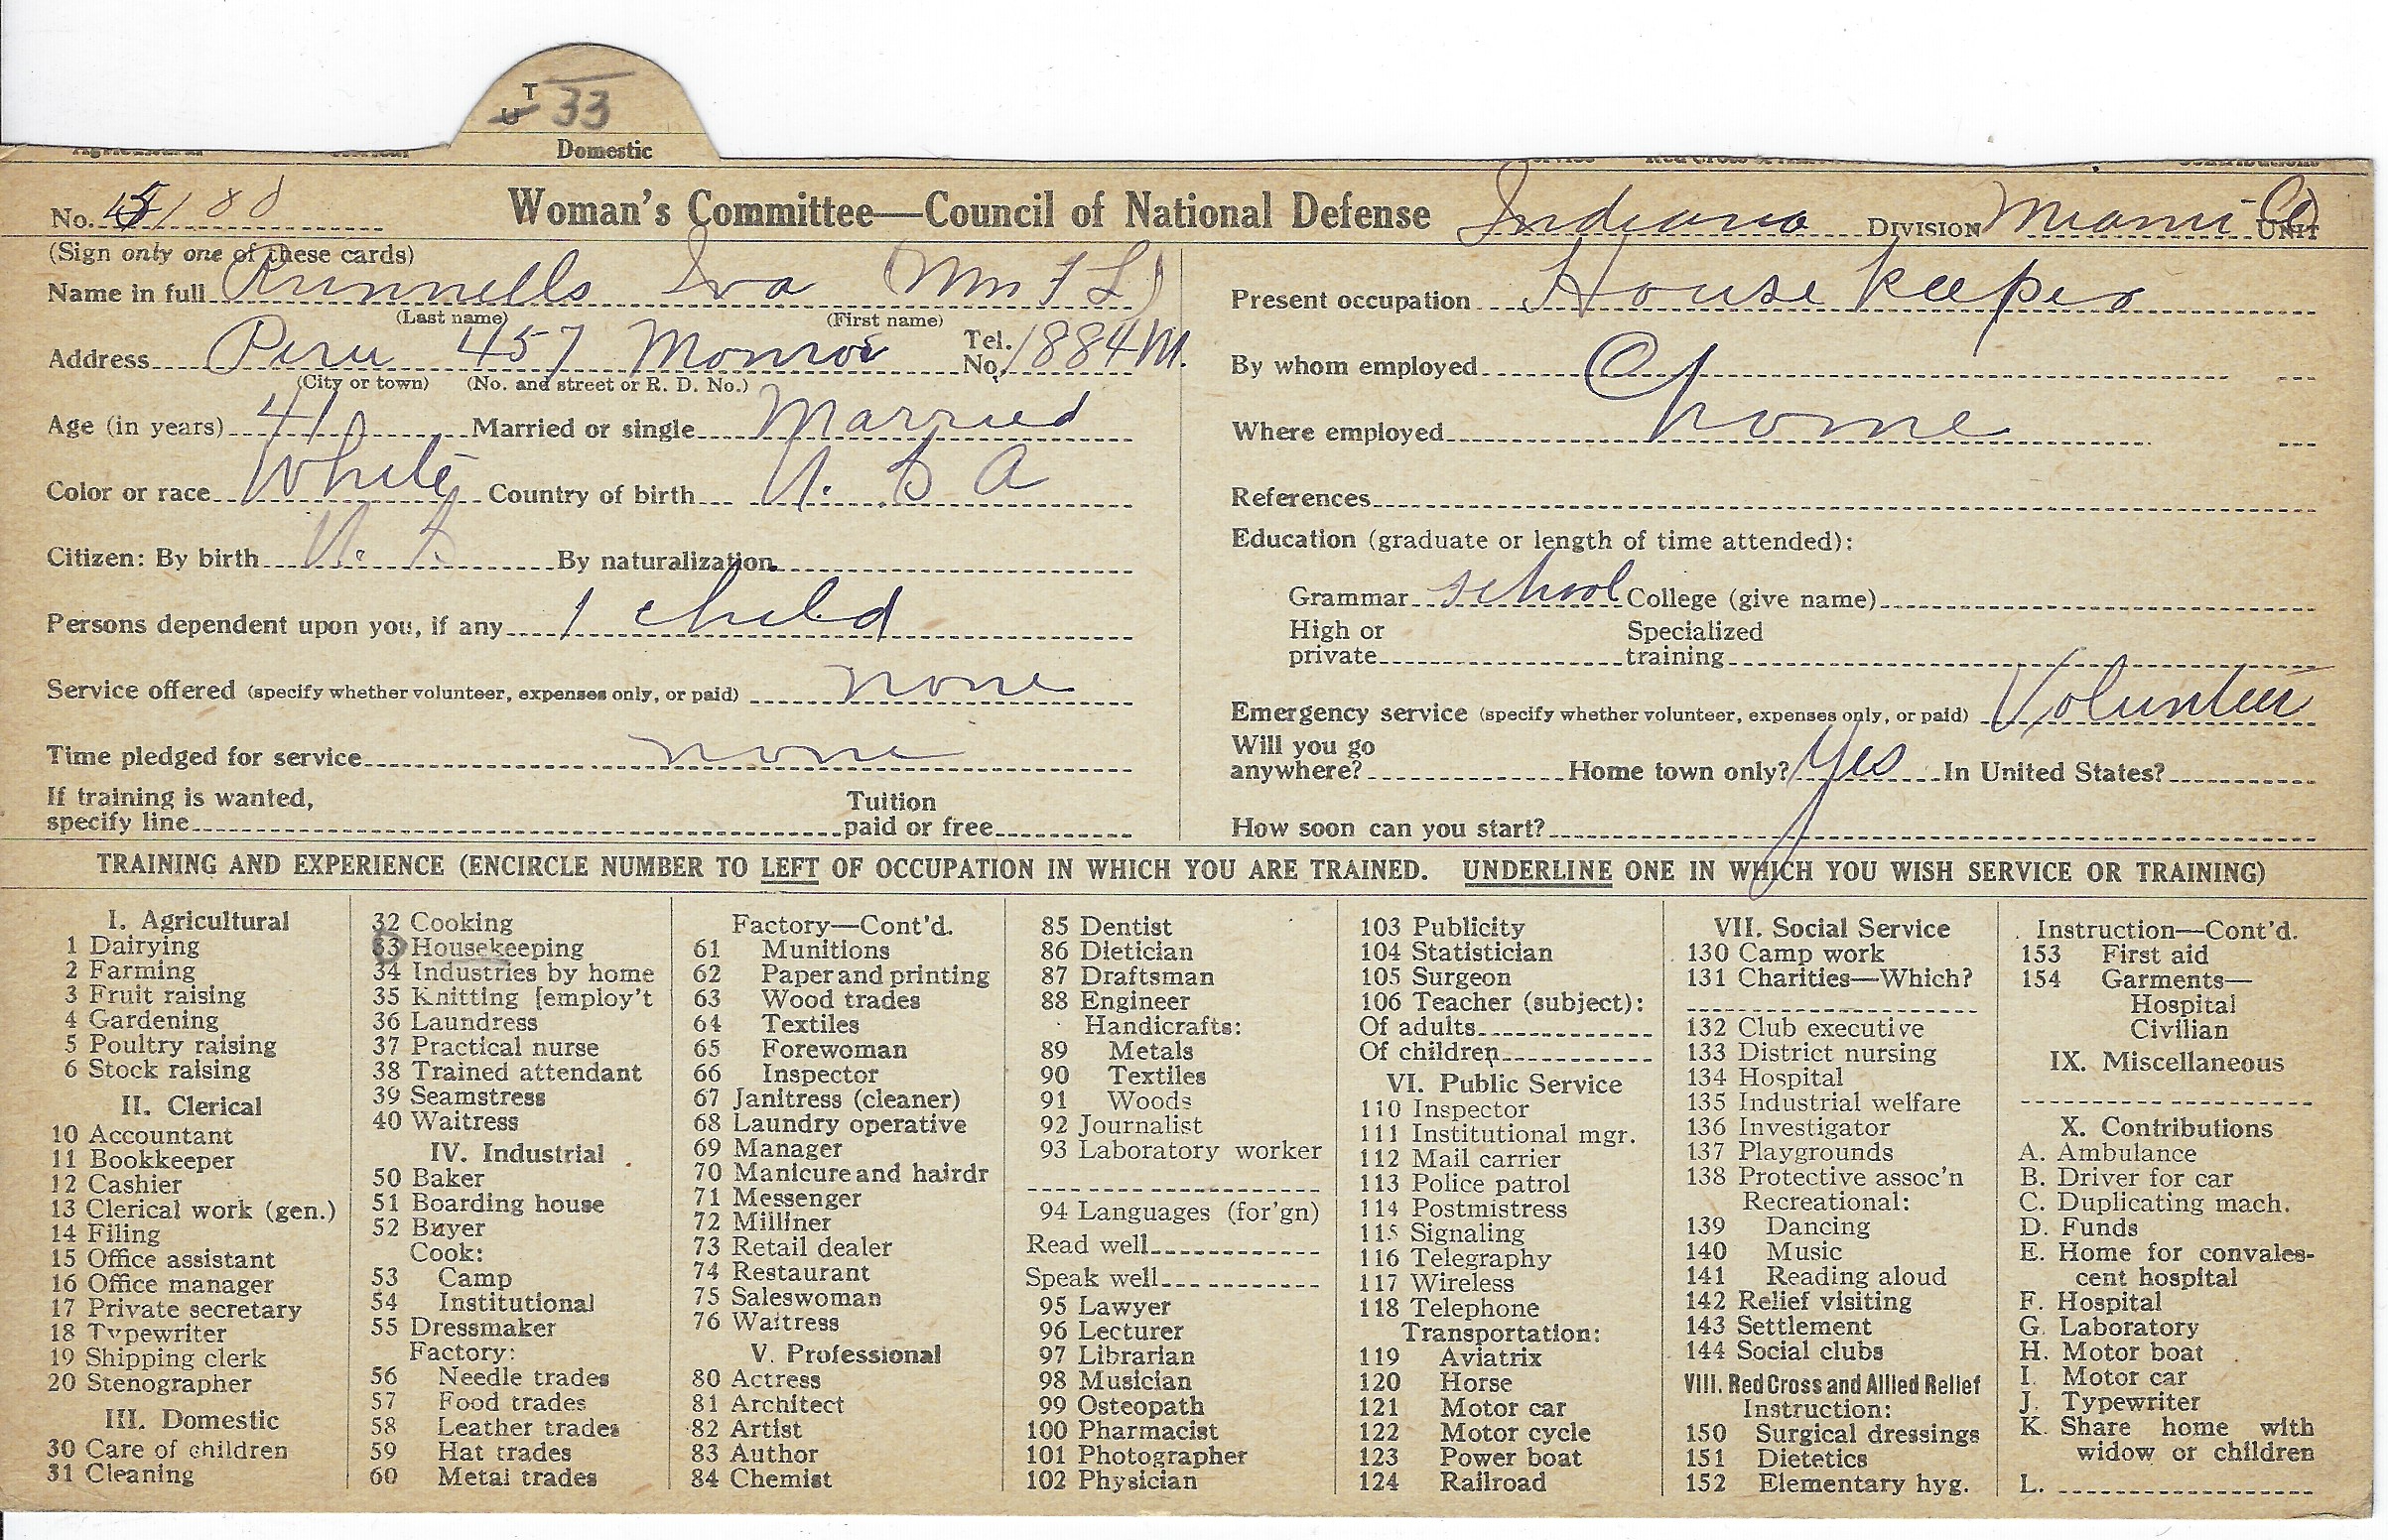 T
U 33
Domestic
No. 5180 Woman's Committee—Council of National Defense Indiana DIVISION Miami Co UNIT
(Sign only one of these cards)
Name in full Runnells Iva (Mrs F L)
(Last name) (First name)
Address Peru 457 Monroe Tel. No. 1884 M.
(City or town) (No. and street or R. D. No.)
Age (in years) 41 Married or single Married
Color or race White Country of birth U. S A
Citizen: By birth U. S By naturalization
Persons dependent upon you, if any 1 child
Service offered (specify whether volunteer, expenses only, or paid) none
Time pledged for service none
If training is wanted,
specify line Tuition paid or free
Present occupation House keeper
By whom employed @
Where employed home
References
Education (graduate or length of time attended):
Grammar school College (give name)
High or private Specialized training
Emergency service (specify whether volunteer, expenses only, or paid) Volunteer
Will you go anywhere? Home town only? Yes In United States?
How soon can you start?
TRAINING AND EXPERIENCE (ENCIRCLE NUMBER TO LEFT OF OCCUPATION IN WHICH YOU ARE TRAINED. UNDERLINE ONE IN WHICH YOU WISH SERVICE OR TRAINING)
I. Agricultural
1 Dairying
2 Farming
3 Fruit raising
4 Gardening
5 Poultry raising
6 Stock raising
II. Clerical
10 Accountant
11 Bookkeeper
12 Cashier
13 Clerical work (gen.)
14 Filing
15 Office assistant
16 Office manager
17 Private secretary
18 Typewriter
19 Shipping clerk
20 Stenographer
III. Domestic
30 Care of children
31 Cleaning
32 Cooking
33 Housekeeping
34 Industries by home
35 Knitting [employ't
36 Laundress
37 Practical nurse
38 Trained attendant
39 Seamstress
40 Waitress
IV. Industrial
50 Baker
51 Boarding house
52 Buyer
Cook:
53 Camp
54 Institutional
55 Dressmaker
Factory:
56 Needle trades
57 Food trades
58 Leather trades
59 Hat trades
60 Metal trades
Factory—Cont'd.
61 Munitions
62 Paper and printing
63 Wood trades
64 Textiles
65 Forewoman
66 Inspector
67 Janitress (cleaner)
68 Laundry operative
69 Manager
70 Manicure and hairdr
71 Messenger
72 Milliner
73 Retail dealer
74 Restaurant
75 Saleswoman
76 Waitress
V. Professional
80 Actress
81 Architect
82 Artist
83 Author
84 Chemist
85 Dentist
86 Dietician
87 Draftsman
88 Engineer
Handicrafts:
89 Metals
90 Textiles
91 Woods
92 Journalist
93 Laboratory worker
94 Languages (for'gn)
Read well
Speak well
95 Lawyer
96 Lecturer
97 Librarian
98 Musician
99 Osteopath
100 Pharmacist
101 Photographer
102 Physician
103 Publicity
104 Statistician
105 Surgeon
106 Teacher (subject):
Of adults
Of children
VI. Public Service
110 Inspector
111 Institutional mgr.
112 Mail carrier
113 Police patrol
114 Postmistress
115 Signaling
116 Telegraphy
117 Wireless
118 Telephone
Transportation:
119 Aviatrix
120 Horse
121 Motor car
122 Motor cycle
123 Power boat
124 Railroad
VII. Social Service
130 Camp work
131 Charities—Which?
132 Club executive
133 District nursing
134 Hospital
135 Industrial welfare
136 Investigator
137 Playgrounds
138 Protective assoc'n
Recreational:
139 Dancing
140 Music
141 Reading aloud
142 Relief visiting
143 Settlement
144 Social clubs
VIII. Red Cross and Allied Relief
Instruction:
150 Surgical dressings
151 Dietetics
152 Elementary hyg.
Instruction—Cont'd.
153 First aid
154 Garments—
Hospital
Civilian
IX. Miscellaneous
X. Contributions
A. Ambulance
B. Driver for car
C. Duplicating mach.
D. Funds
E. Home for convales-
cent hospital
F. Hospital
G. Laboratory
H. Motor boat
I. Motor car
J. Typewriter
K. Share home with
widow or children
L.